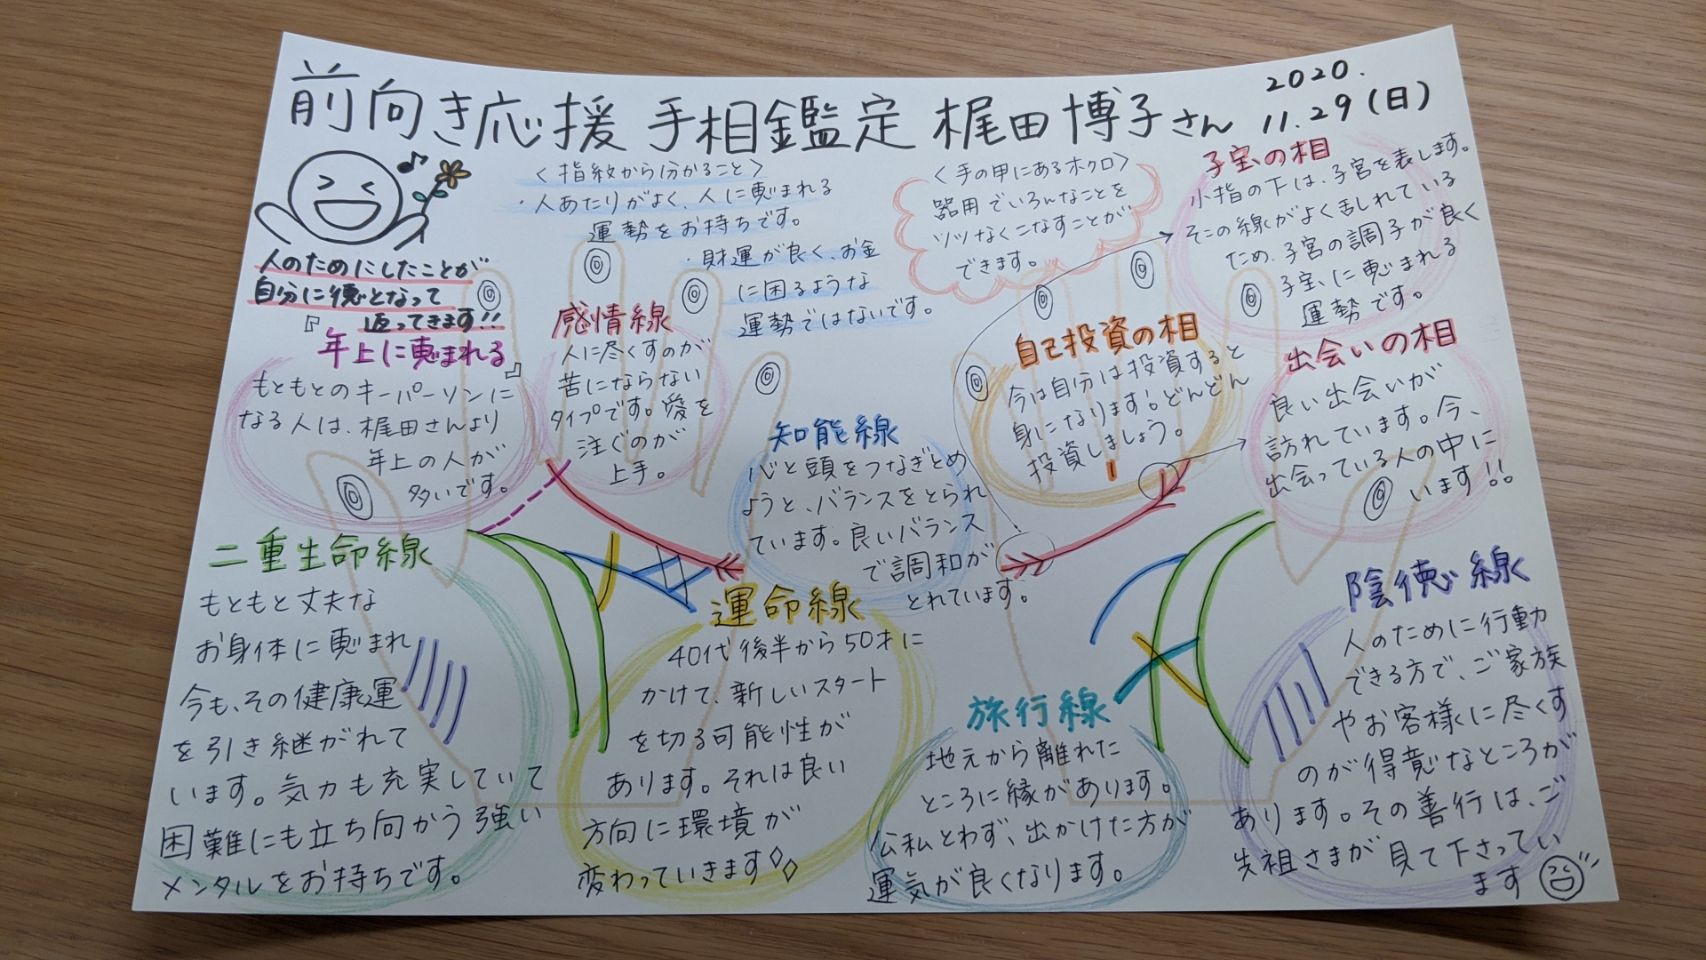 前向き応援 手相鑑定 梶田博子さん
2020.
11.29(日)
人のためにしたことが
自分に徳となって
返ってきます!!
<指紋から分かること>
・人あたりがよく、人に恵まれる
運勢をお持ちです。
・財運が良く、お金
に困るような
運勢ではないです。
<手の甲にあるホクロ>
器用でいろんなことを
ソツなくこなすことが
できます。
子宝の相
小指の下は、子宮を表します。
そこの線がよく乱れている
ため、子宮の調子が良く
子宝に恵まれる
運勢です。
『年上に恵まれる』
もともとのキーパーソンに
なる人は、梶田さんより
年上の人が
多いです。
感情線
人に尽くすのが
苦にならない
タイプです。愛を
注ぐのが
上手。
知能線
心と頭をつなぎとめ
ようと、バランスをとられ
ています。良いバランス
で調和が
とれています。
自己投資の相
今は自分は投資すると
身になります。どんどん
投資しましょう。
出会いの相
良い出会いが
訪れています。今、
出会っている人の中に
います!!
二重生命線
もともと丈夫な
お身体に恵まれ
今も、その健康運
を引き継がれて
います。気力も充実していて
困難にも立ち向かう強い
メンタルをお持ちです。
運命線
40代後半から50才に
かけて、新しいスタート
を切る可能性が
あります。それは良い
方向に環境が
変わっていきます
旅行線
地元から離れた
ところに縁があります。
公私とわず、出かけた方が
運気が良くなります。
陰徳線
人のために行動
できる方で、ご家族
やお客様に尽くす
のが得意なところが
あります。その善行は、ご
先祖さまが見て下さってい
ます